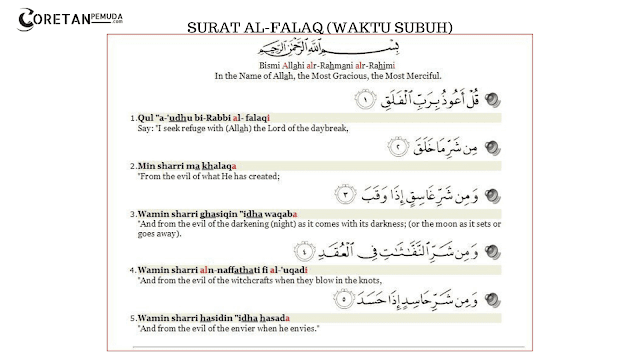 CORETANPEMUDA.com
SURAT AL-FALAQ (WAKTU SUBUH)
بِسْمِ اللَّهِ الرَّحْمَٰنِ الرَّحِيمِ
Bismi Allahi alr-Rahmani alr-Rahimi
In the Name of Allah, the Most Gracious, the Most Merciful.
قُلْ أَعُوذُ بِرَبِّ الْفَلَقِ ١
1. Qul "a-'udhu bi-Rabbi al- falaqi
Say: "I seek refuge with (Allah) the Lord of the daybreak,
مِن شَرِّ مَا خَلَقَ ٢
2. Min sharri ma khalaqa
"From the evil of what He has created;
وَمِن شَرِّ غَاسِقٍ إِذَا وَقَبَ ٣
3. Wamin sharri ghasiqin "idha waqaba
"And from the evil of the darkening (night) as it comes with its darkness; (or the moon as it sets or
goes away).
وَمِن شَرِّ النَّفَّٰثَٰتِ فِي الْعُقَدِ ٤
4. Wamin sharri aln-naffathati fi al-'uqadi
"And from the evil of the witchcrafts when they blow in the knots,
وَمِن شَرِّ حَاسِدٍ إِذَا حَسَدَ ٥
5. Wamin sharri hasidin "idha hasada
"And from the evil of the envier when he envies."